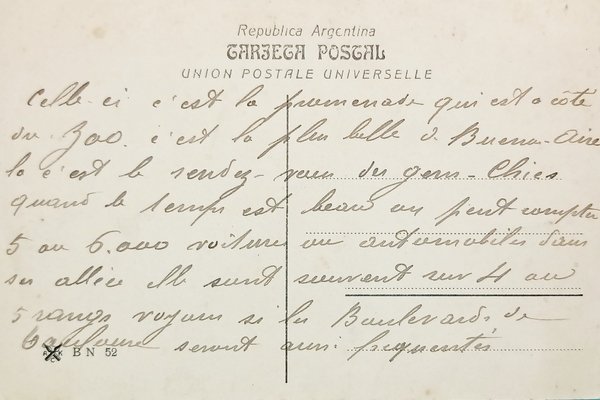 Republica Argentina
TARJETA POSTAL
UNION POSTALE UNIVERSELLE
Celle-ci c'est la promenade qui est a côté
du Zoo. c'est la plus belle d Buenos-Aire
la c'est le rendez-vous des gens-Chics
quand le temps est beau on peut compter
5 ou 6.000 voitures ou automobiles dans
ses allée elle sont souvent sur 4 ou
5 rangs voyons si les Boulevards de
Toulouse seront aussi frequentés
BN 52